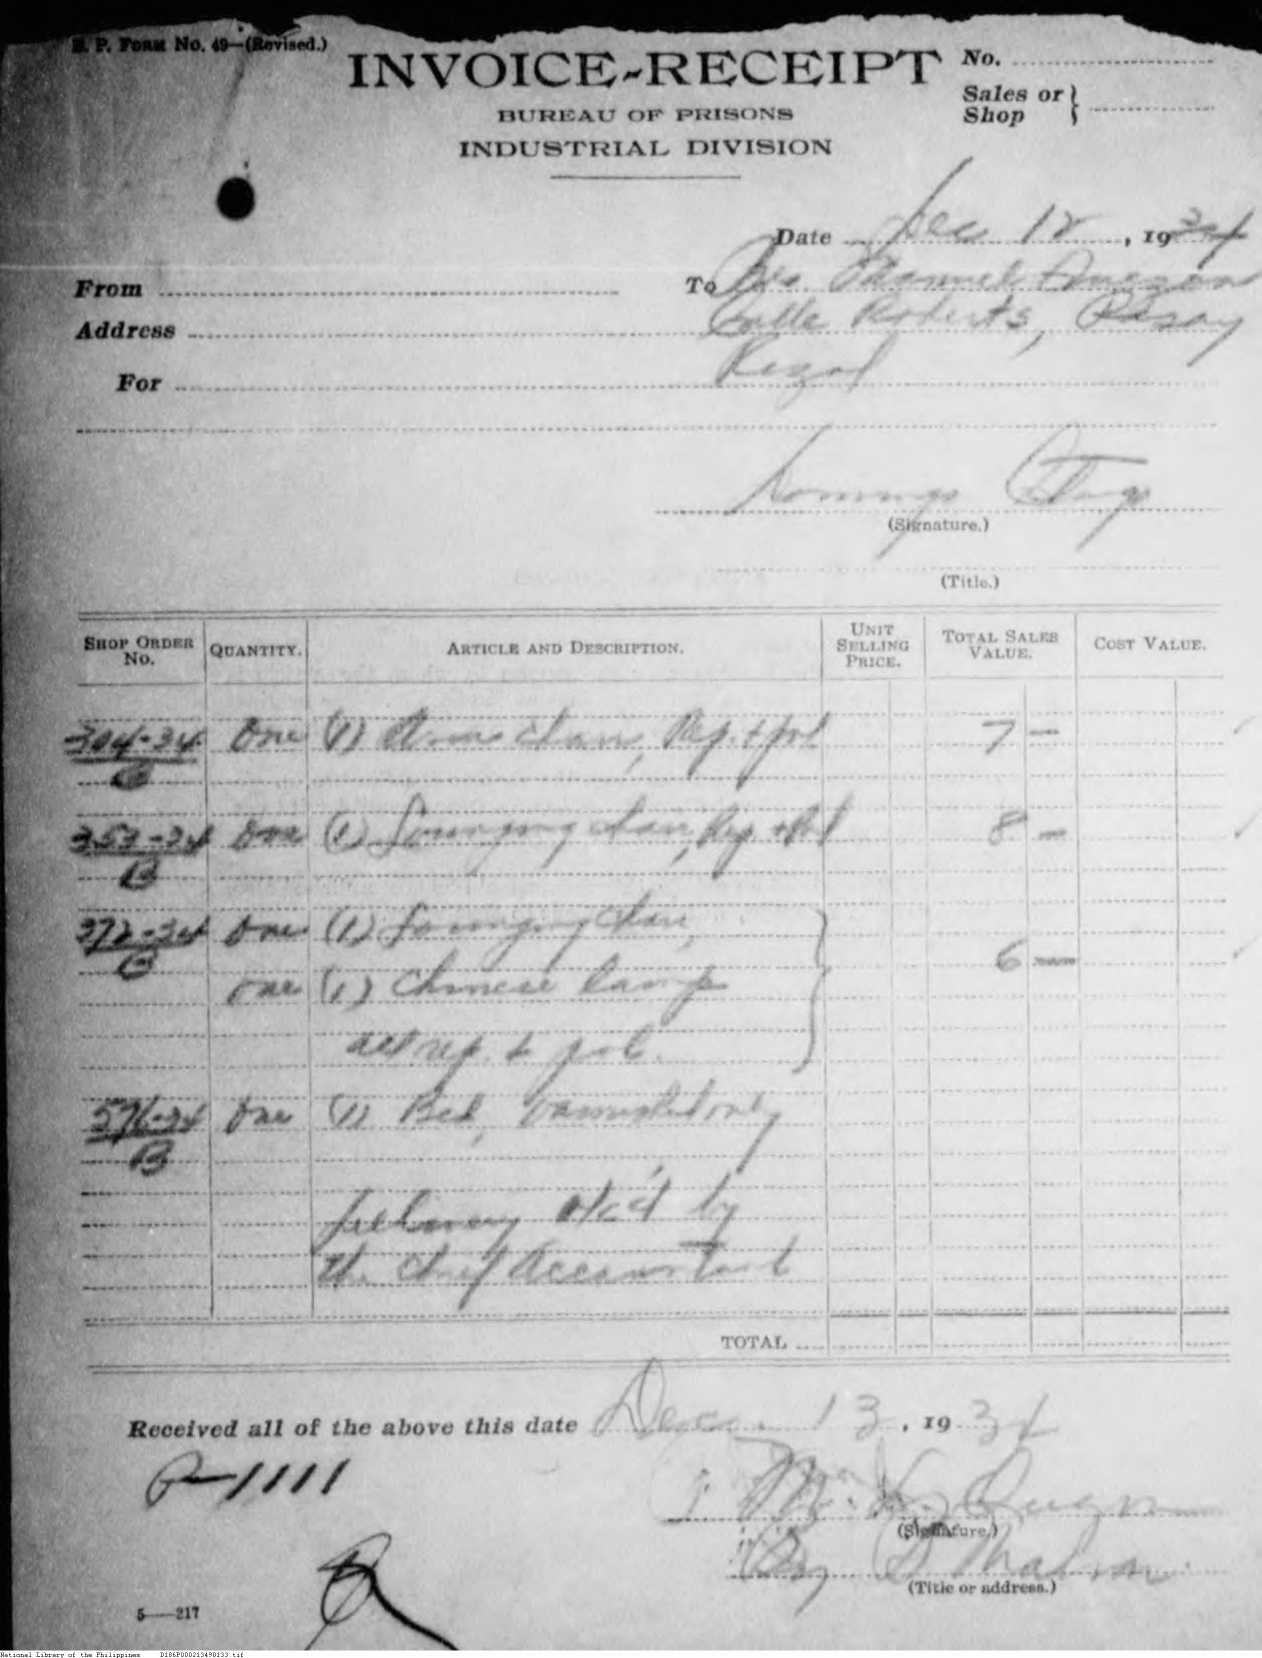 B. P. Form No. 49—(Revised.)
INVOICE-RECEIPT
BUREAU OF PRISONS
INDUSTRIAL DIVISION
No.
Sales or
Shop
Date Dec 12, 1934
From
To Manuel Quezon
Address
Calle Roberts, Pasay
For
Rizal
(Signature.)
(Title.)
SHOP ORDER NO. QUANTITY. ARTICLE AND DESCRIPTION. UNIT SELLING PRICE. TOTAL SALES VALUE. COST VALUE.
304-34 One (1) Arm chair, Rep. & pol 7 —
B
353-34 One (1) Lounging chair, Rep. & Pol 8 —
B
372-34 One (1) Lounging chair,
B
6 —
One (1) Chinese lamp
all rep. & pol.
576-34 One (1) Bed, varnished only
B
delivery o/k'd by
the Chief Accountant
TOTAL
Received all of the above this date Dec. 13, 1934
P-1111
M. L. Quezon
(Signature.)
By
(Title or address.)
5——217
National Library of the Philippines D186P000213490133.tif